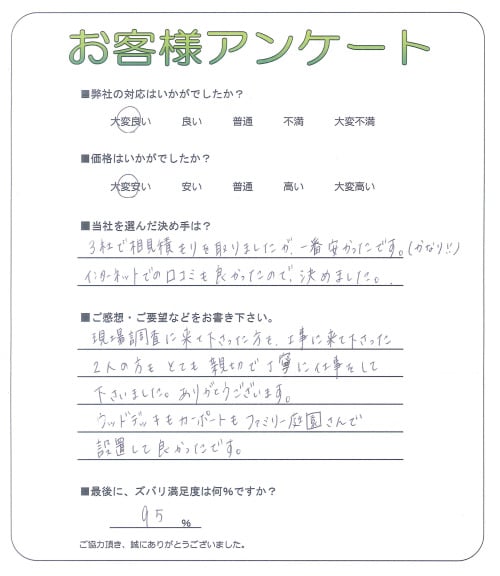 お客様アンケート
■弊社の対応はいかがでしたか？
大変良い 良い 普通 不満 大変不満
■価格はいかがでしたか？
大変安い 安い 普通 高い 大変高い
■当社を選んだ決め手は？
3社で相見積もりを取りましたが、一番安かったです。(かなり!!)
インターネットでの口コミも良かったので、決めました。
■ご感想・ご要望などをお書き下さい。
現場調査に来て下さった方も、工事に来て下さった
2人の方も とても 親切で丁寧に仕事をして
下さいました。ありがとうございます。
ウッドデッキもカーポートも ファミリー庭園さんで
設置して良かったです。
■最後に、ズバリ満足度は何％ですか？
95 %
ご協力頂き、誠にありがとうございました。